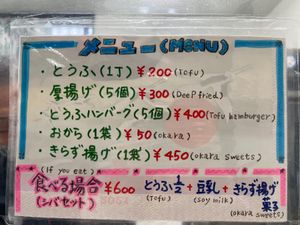 メニュー (MENU)
・とうふ(1丁) ¥200 (Tofu)
・厚揚げ(5個) ¥300 (Deep fried)
・とうふハンバーグ(5個) ¥400 (Tofu hamburger)
・おから(1袋) ¥50 (okara)
・きらず揚げ(1袋) ¥450 (okara sweets)
(If you eat)
食べる場合 ¥600 とうふ1/2 + 豆乳 + きらず揚げ
(シバセット) (Tofu) (soy milk) 菓子
(okara sweets)